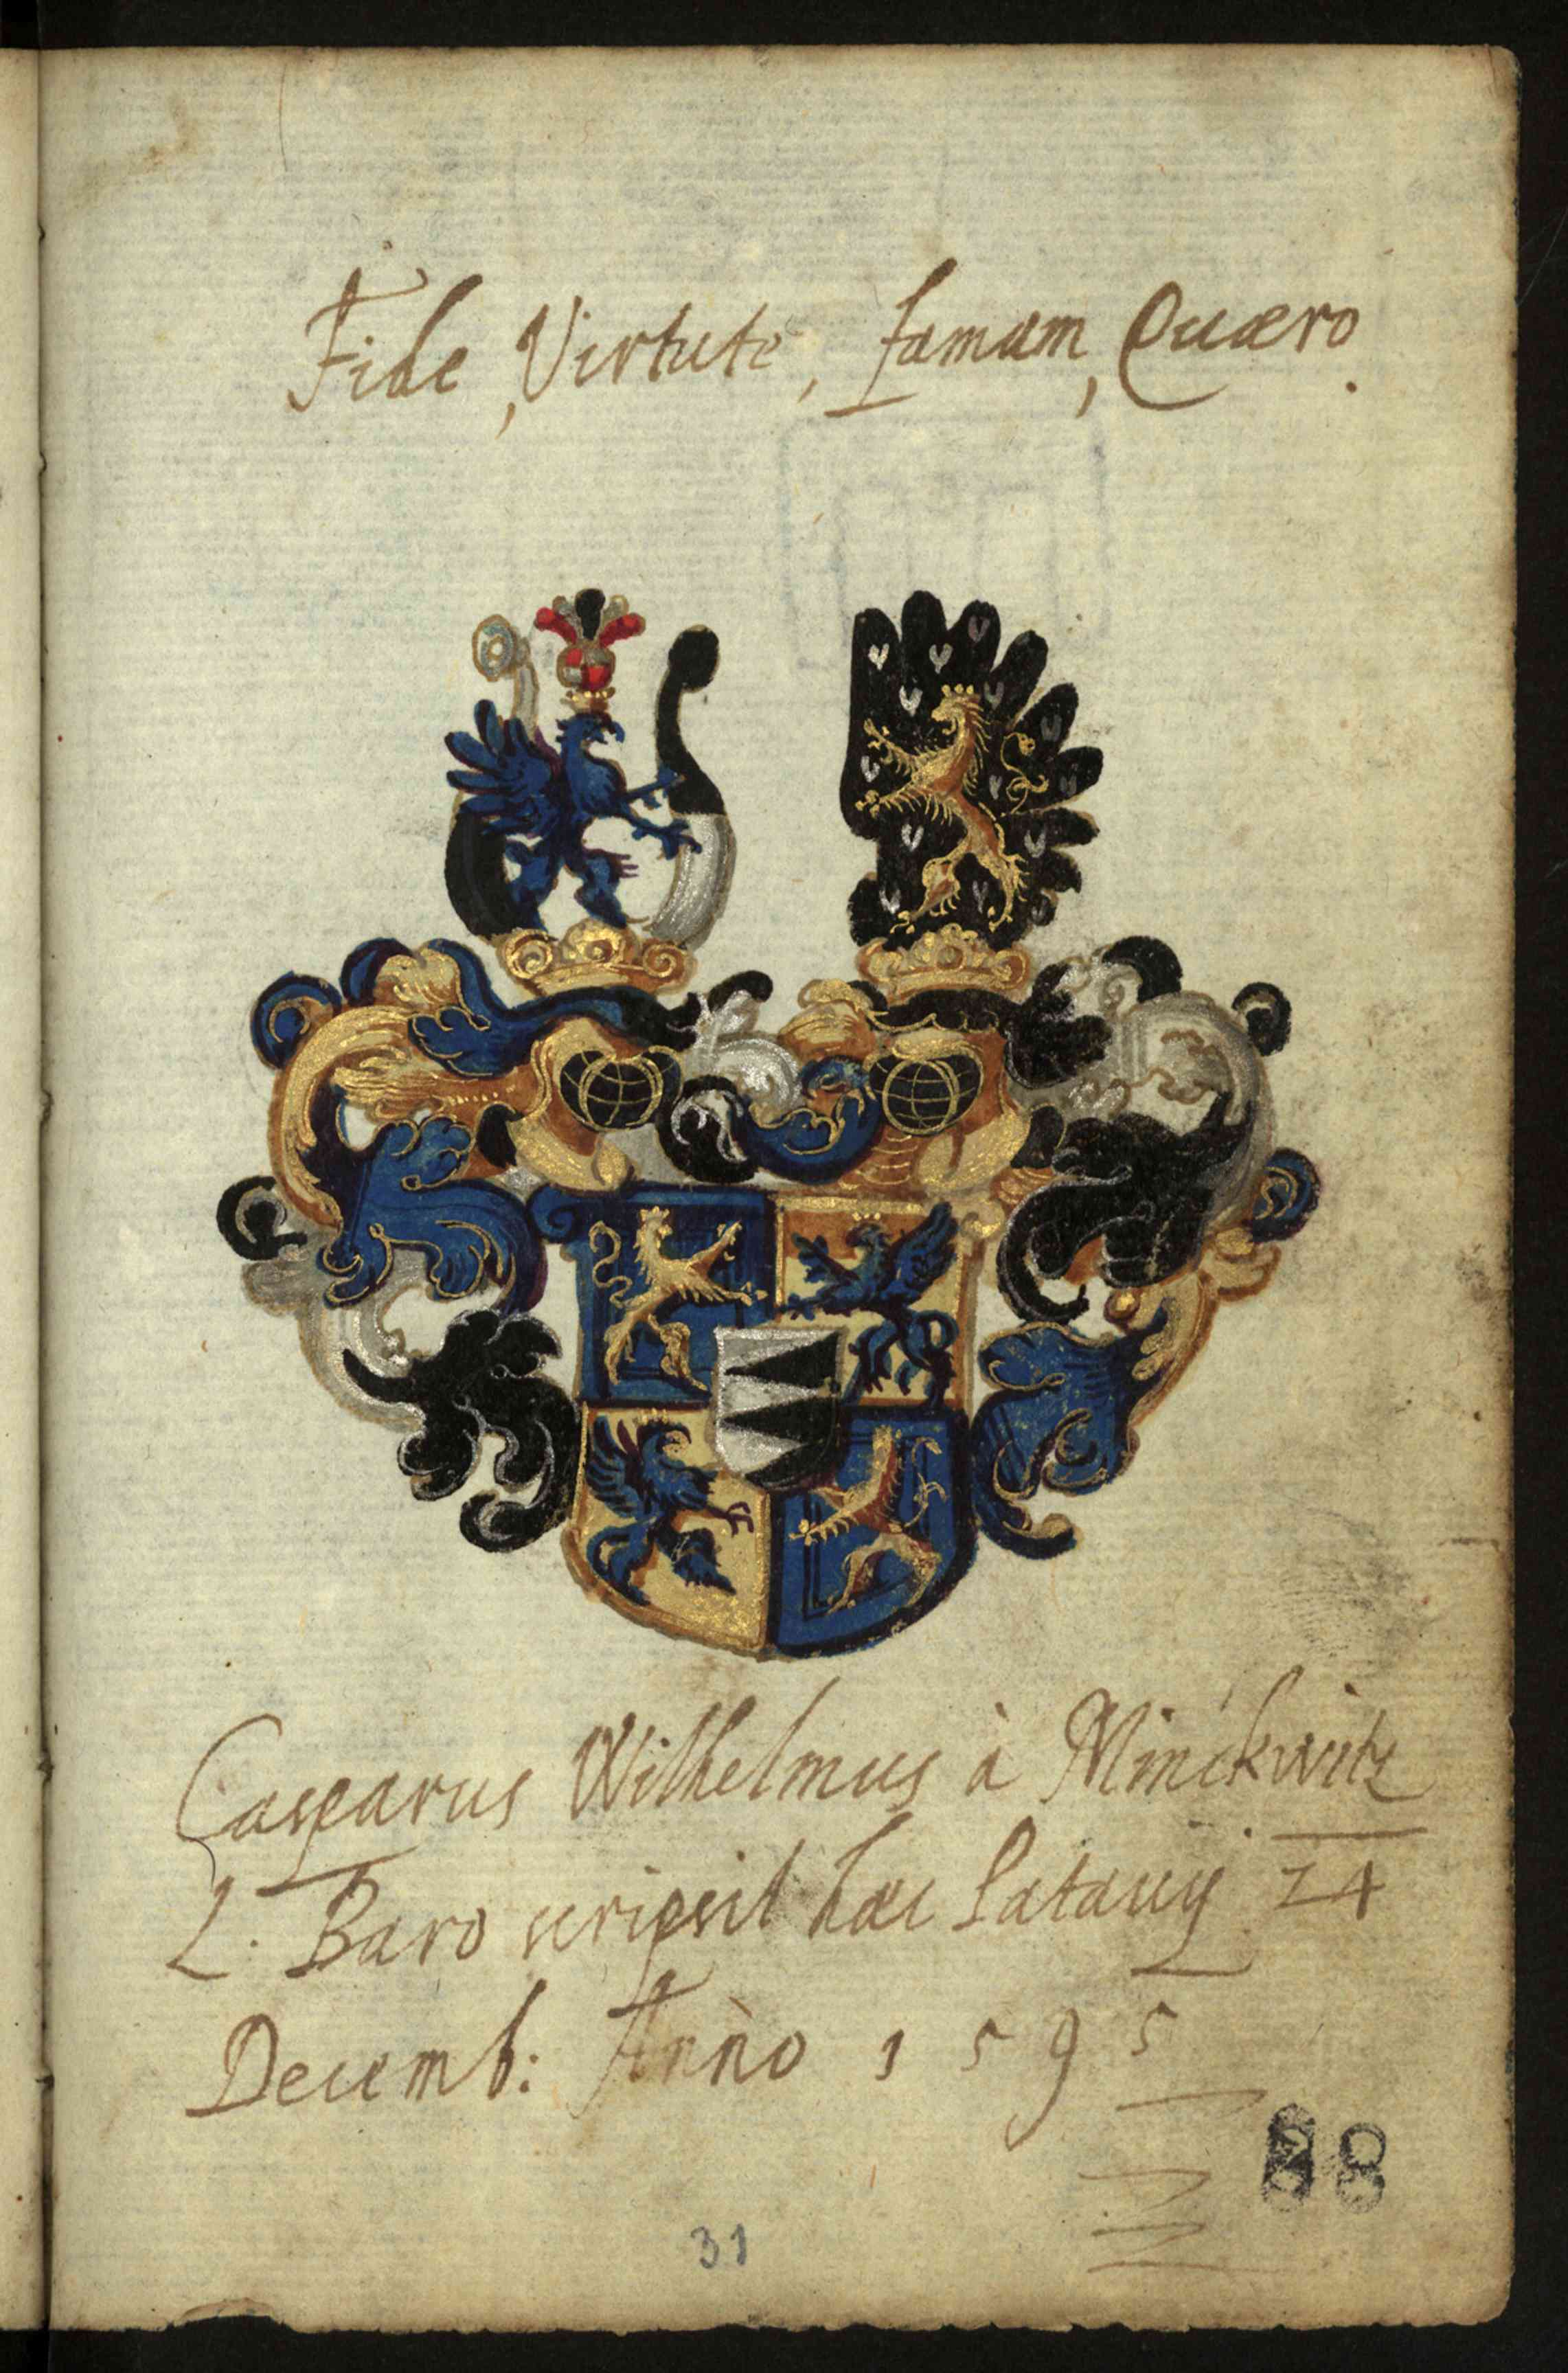 Fide, Virtute, famam, Quæro.
Casparus Wilhelmus à Minckwitz
L. Baro scripsit hæc Patavij 14
Decemb: Anno 1595
88
31